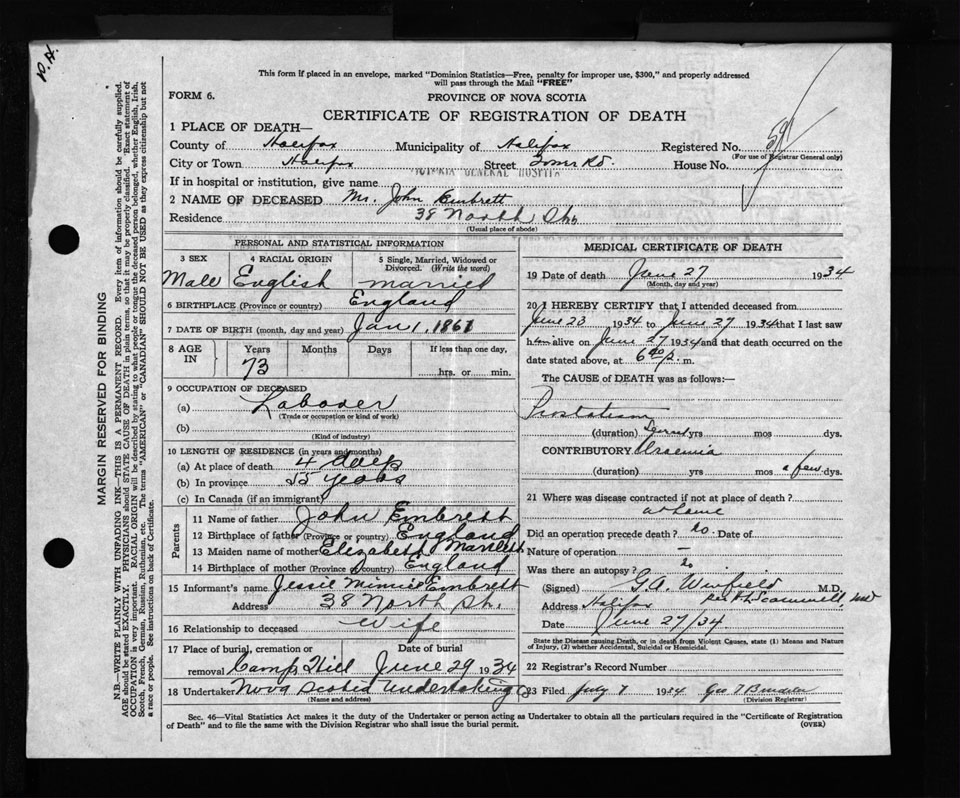 P.H.
This form if placed in an envelope, marked "Dominion Statistics—Free, penalty for improper use, $300," and properly addressed
will pass through the Mail "FREE"
FORM 6.
PROVINCE OF NOVA SCOTIA
CERTIFICATE OF REGISTRATION OF DEATH
1 PLACE OF DEATH—
County of Halifax Municipality of Halifax Registered No. 591
(For use of Registrar General only)
City or Town Halifax Street Tower Rd. House No.
VICTORIA GENERAL HOSPITAL
If in hospital or institution, give name
2 NAME OF DECEASED Mr. John Embrett
Residence 38 North St.
(Usual place of abode)
PERSONAL AND STATISTICAL INFORMATION
3 SEX 4 RACIAL ORIGIN 5 Single, Married, Widowed or Divorced. (Write the word)
Male English married
6 BIRTHPLACE (Province or country) England
7 DATE OF BIRTH (month, day and year) Jan 1, 1861
8 AGE IN Years Months Days If less than one day,
73 hrs. or min.
9 OCCUPATION OF DECEASED
(a) Laborer
(Trade or occupation or kind of work)
(b)
(Kind of industry)
10 LENGTH OF RESIDENCE (in years and months)
(a) At place of death 4 days
(b) In province 55 years
(c) In Canada (if an immigrant)
Parents
11 Name of father John Embrett
12 Birthplace of father (Province or country) England
13 Maiden name of mother Elizabeth
14 Birthplace of mother (Province or country) England
15 Informant's name Jessie Minnie Embrett
Address 38 North St.
16 Relationship to deceased wife
17 Place of burial, cremation or removal Camp Hill Date of burial June 29 1934
18 Undertaker Nova Scotia Undertaking Co
(Name and address)
MEDICAL CERTIFICATE OF DEATH
19 Date of death June 27 1934
(Month, day and year)
20 I HEREBY CERTIFY that I attended deceased from
June 23 1934 to June 27 1934 that I last saw
him alive on June 27 1934 and that death occurred on the
date stated above, at 6 40 p. m.
The CAUSE of DEATH was as follows:—
Prostatism
(duration) Several yrs mos dys.
CONTRIBUTORY Uraemia
(duration) yrs mos a few dys.
21 Where was disease contracted if not at place of death?
at home
Did an operation precede death? no. Date of
Nature of operation —
Was there an autopsy? no
(Signed) G.A. Winfield M.D.
Address Halifax per
Date June 27/34
State the Disease causing Death, or in death from Violent Causes, state (1) Means and Nature
of Injury, (2) whether Accidental, Suicidal or Homicidal.
22 Registrar's Record Number
23 Filed July 7 1934 Geo
(Division Registrar)
Sec. 46—Vital Statistics Act makes it the duty of the Undertaker or person acting as Undertaker to obtain all the particulars required in the "Certificate of Registration
of Death" and to file the same with the Division Registrar who shall issue the burial permit. (OVER)
MARGIN RESERVED FOR BINDING
N.B.—WRITE PLAINLY WITH UNFADING INK—THIS IS A PERMANENT RECORD. Every item of information should be carefully supplied.
AGE should be stated EXACTLY. PHYSICIANS should STATE CAUSE OF DEATH in plain terms, so that it may be properly classified. Exact statement of
OCCUPATION is very important. RACIAL ORIGIN will be described by stating to what people or tongue the deceased person belonged, whether English, Irish,
Scotch, French, German, Russian, Ruthenian, etc. The terms "AMERICAN" or "CANADIAN" SHOULD NOT BE USED as they express citizenship but not
a race or people. See instructions on back of Certificate.